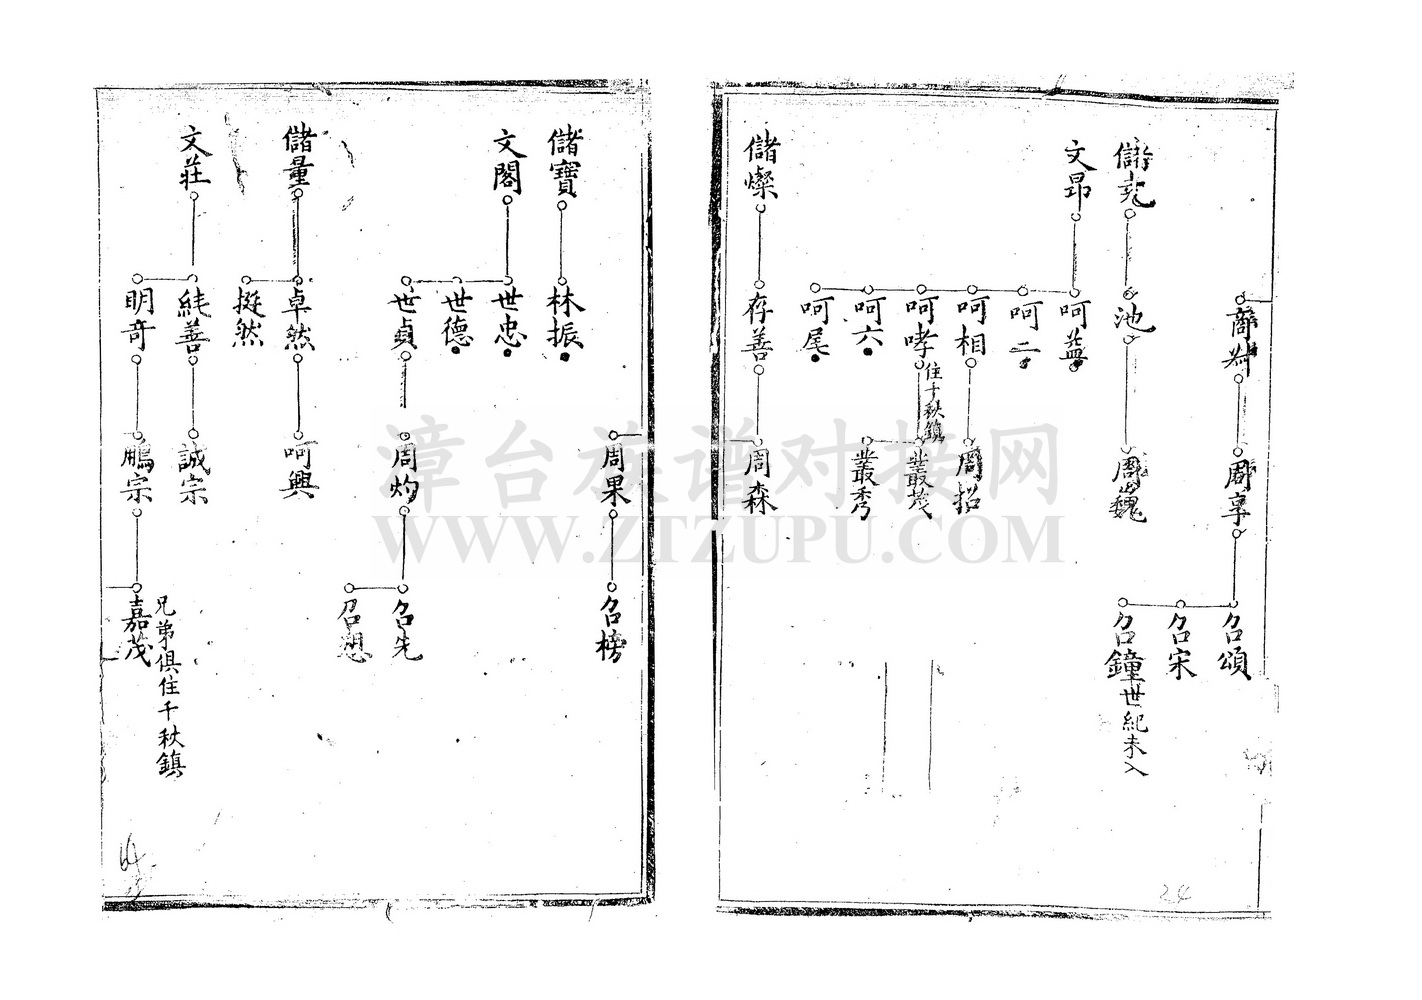 周享
召頌
召宋
召鐘世紀未入
池
周巍
文昂
呵益
呵二
呵相
周招
呵哮
住千秋鎮
叢茂
叢秀
呵六
呵尾
儲燦
存善
周森
周果
召榜
儲寶
林振
文閣
世忠
世德
世貞
周灼
召先
召想
儲量
卓然
呵興
挺然
文莊
純善
誠宗
明奇
鵬宗
嘉茂
兄弟俱住千秋鎮
24
漳台族谱对接网
WWW.ZTZUPU.COM